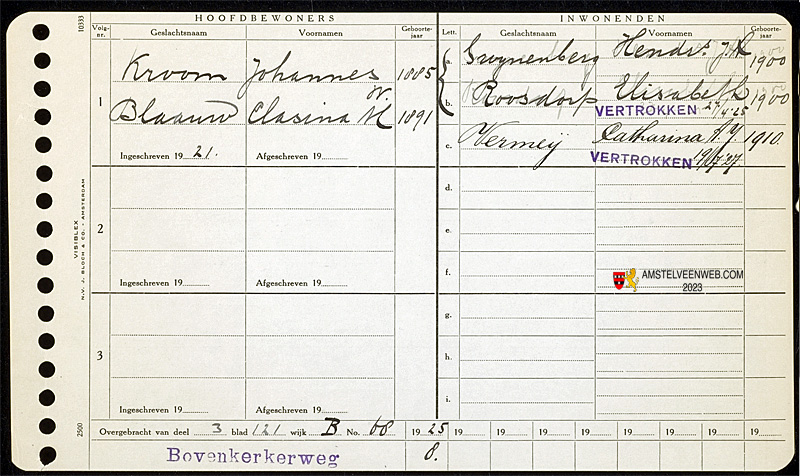 HOOFDBEWONERS
INWONENDEN
Volg-nr.
Geslachtsnaam
Voornamen
Geboorte-jaar
Lett.
Geslachtsnaam
Voornamen
Geboorte-jaar
1
Kroom Johannes 1885
W.
Blaauw Clasina H 1891
Ingeschreven 19 21.
Afgeschreven 19
a. Gruynenberg Hendr. 1900
b. Roosdorp Elisabeth 1900
VERTROKKEN
c. Vermeÿ Catharina A. 1910.
VERTROKKEN
d.
2
e.
f.
Ingeschreven 19
Afgeschreven 19
AMSTELVEENWEB.COM
2023
3
g.
h.
i.
Ingeschreven 19
Afgeschreven 19
Overgebracht van deel 3 blad 121 wijk B No. 68
19 25 19 19 19 19 19 19 19
Bovenkerkerweg
8.
10333
VISIBLEX
N.V. J. BLOCH & CO. - AMSTERDAM
2500